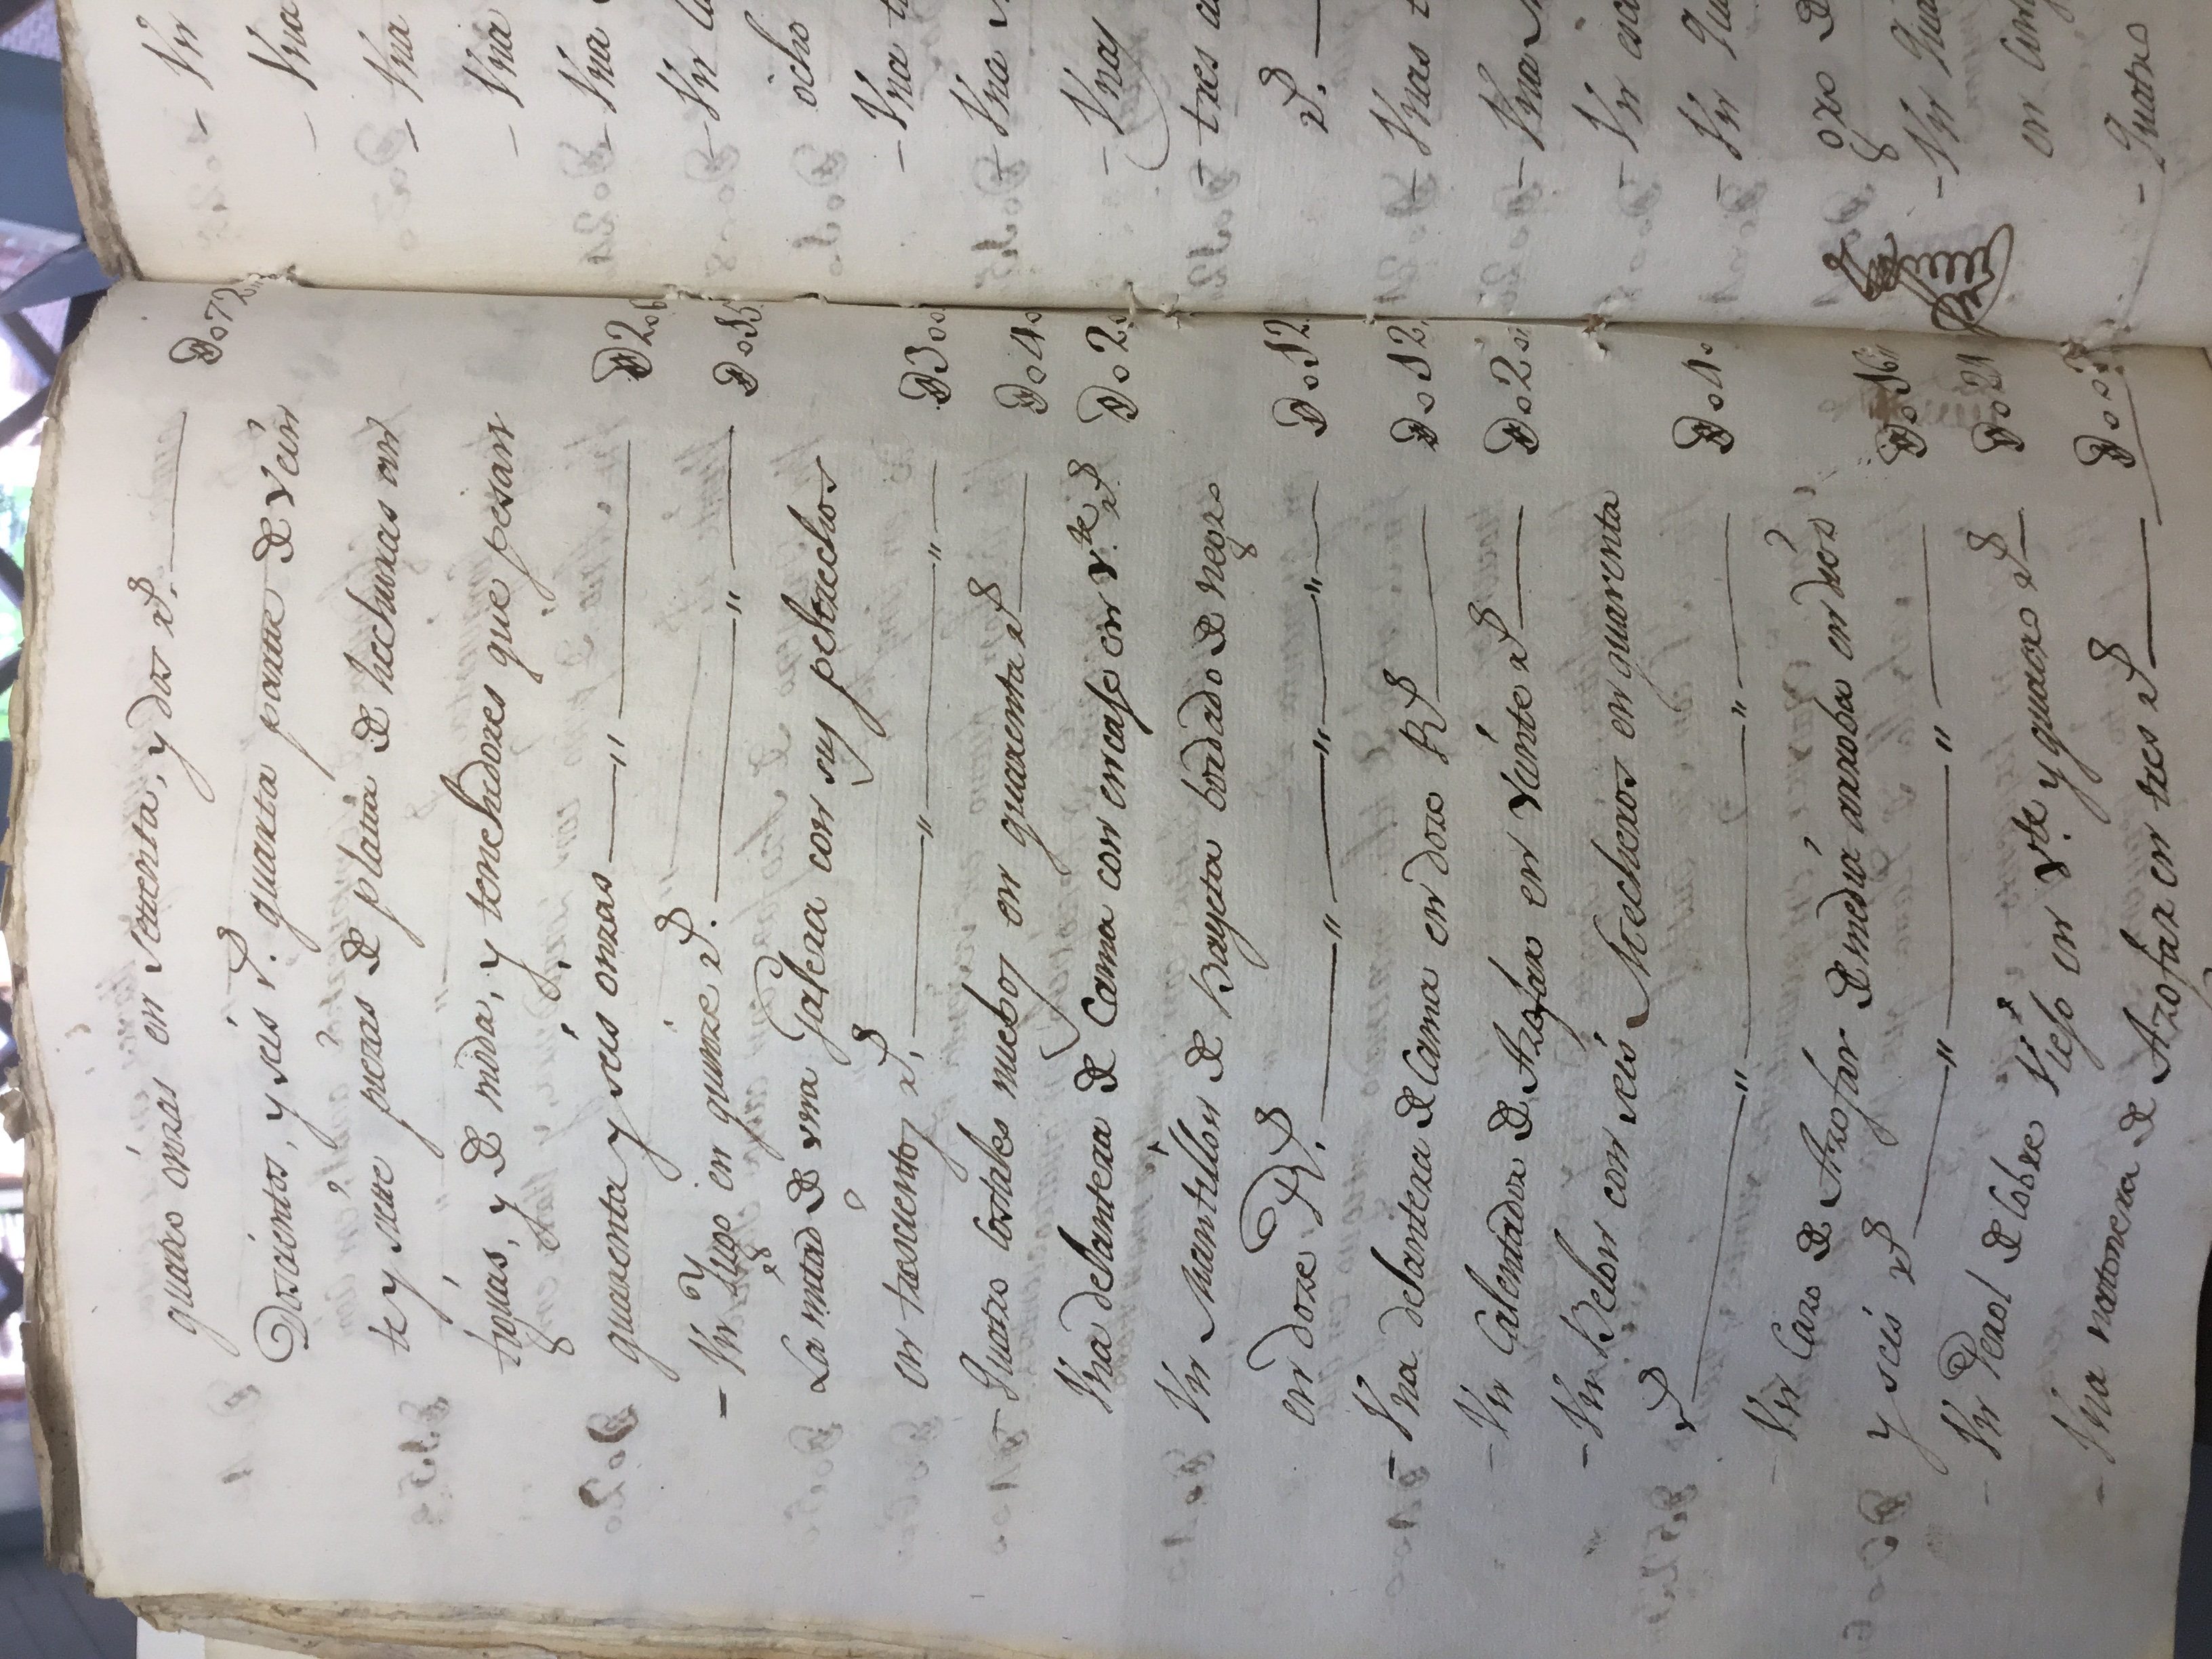 quatro onzas en Setenta, y dos rs. Do72
Doscientos, y seis rs. quarta parte de vein
te y siete piezas de plata de hechuras an
tiguas, y de moda, y tenedores que pesan
quarenta y seis onzas D206
- Vn Lugo en quinze rs. Do15
La mitad de vna Galera con sus peltrechos
en trescientos rs. D300
- Quatro Costales nuebos en quarenta rs Do40
Vna delantera de Cama con encaje en vte rs Do20
Vn Mantillon de Bayeta bordado de negro
en doze Rs. Do12
- Vna delantera de Cama en doze Rs Do12
- Vn Calentador de Azofar en veinte rs Do20
- Vn Belon con seis Mecheros en quarenta
rs Do40
- Vn Cazo de Azofar de media arroba en diez
y seis rs Do16
- Vn Perol de Cobre Viejo en vte y quatro rs Do24
- Vna ratonera de Azofar en tres rs Doo3
- Vn
- Vna
- Vna
- Vna
- Vna
- Vn
ocho
- Vna
- Vna
- Vnas
tres
rs.
- Vnas
- Vna
- Vn
- Vn
- Vn
en
- Quatro